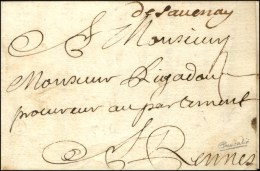 de Savenay
A Monsieur
Monsieur Rigadoul
procureur au parlement
A Rennes